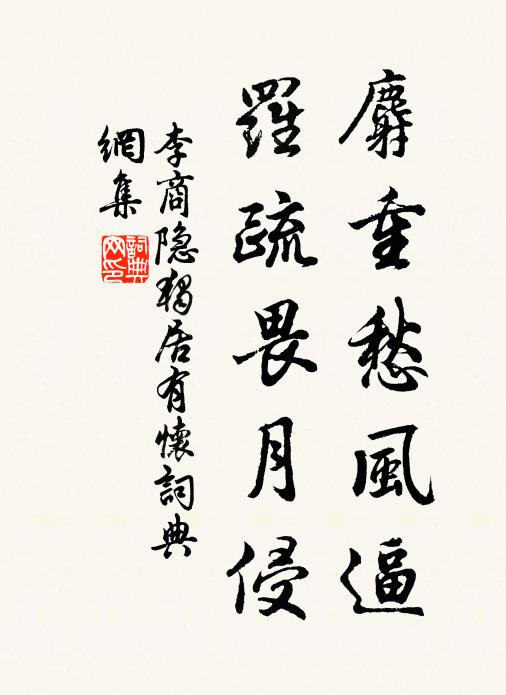 麝重愁風逼
羅疏畏月侵
李商隐獨居有懷詞典
網集
詞典网印